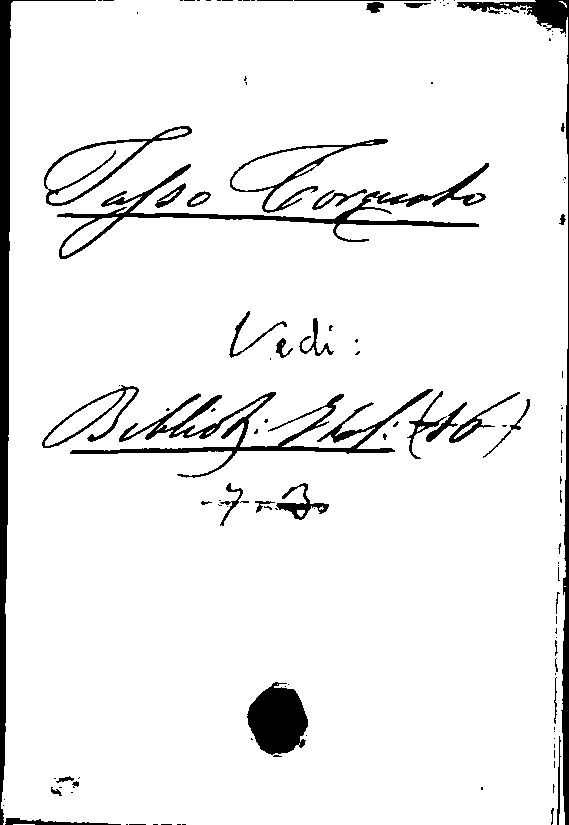 Tasso Torquato
Vedi:
Biblioth: Ital: (16)
7. B